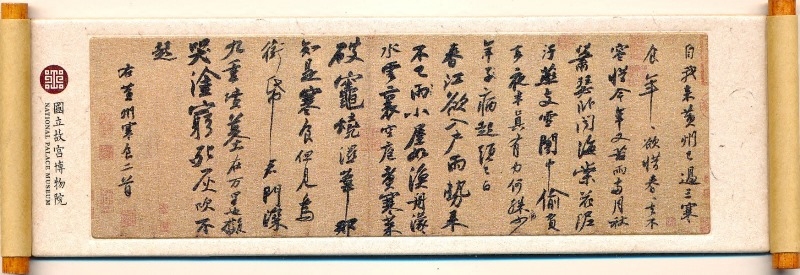 自我來黃州已過三寒
食年〻欲惜春〻去不
容惜今年又苦雨兩月秋
蕭瑟臥聞海棠花泥
汙燕支雪闇中偷負
去夜半真有力何殊少
年子病起頭已白
春江欲入戶雨勢來
不已雨小屋如漁舟濛〻
水雲裏空庖煮寒菜
破竈燒濕葦那
知是寒食但見烏
銜帋君門深
九重墳墓在万里也擬
哭塗窮死灰吹不
起
右黃州寒食二首
國立故宮博物院
NATIONAL PALACE MUSEUM